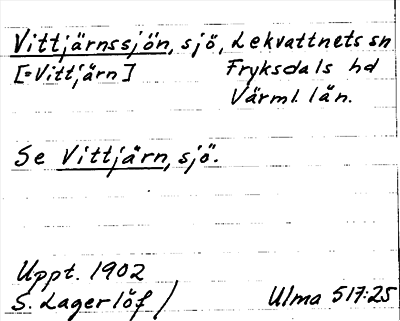 Vittjärnssjön, sjö, Lekvattnets sn
[=Vittjärn] Fryksdals hd
Värml. län.
Se Vittjärn, sjö.
Uppt. 1902
S. Lagerlöf / Ulma 517:25